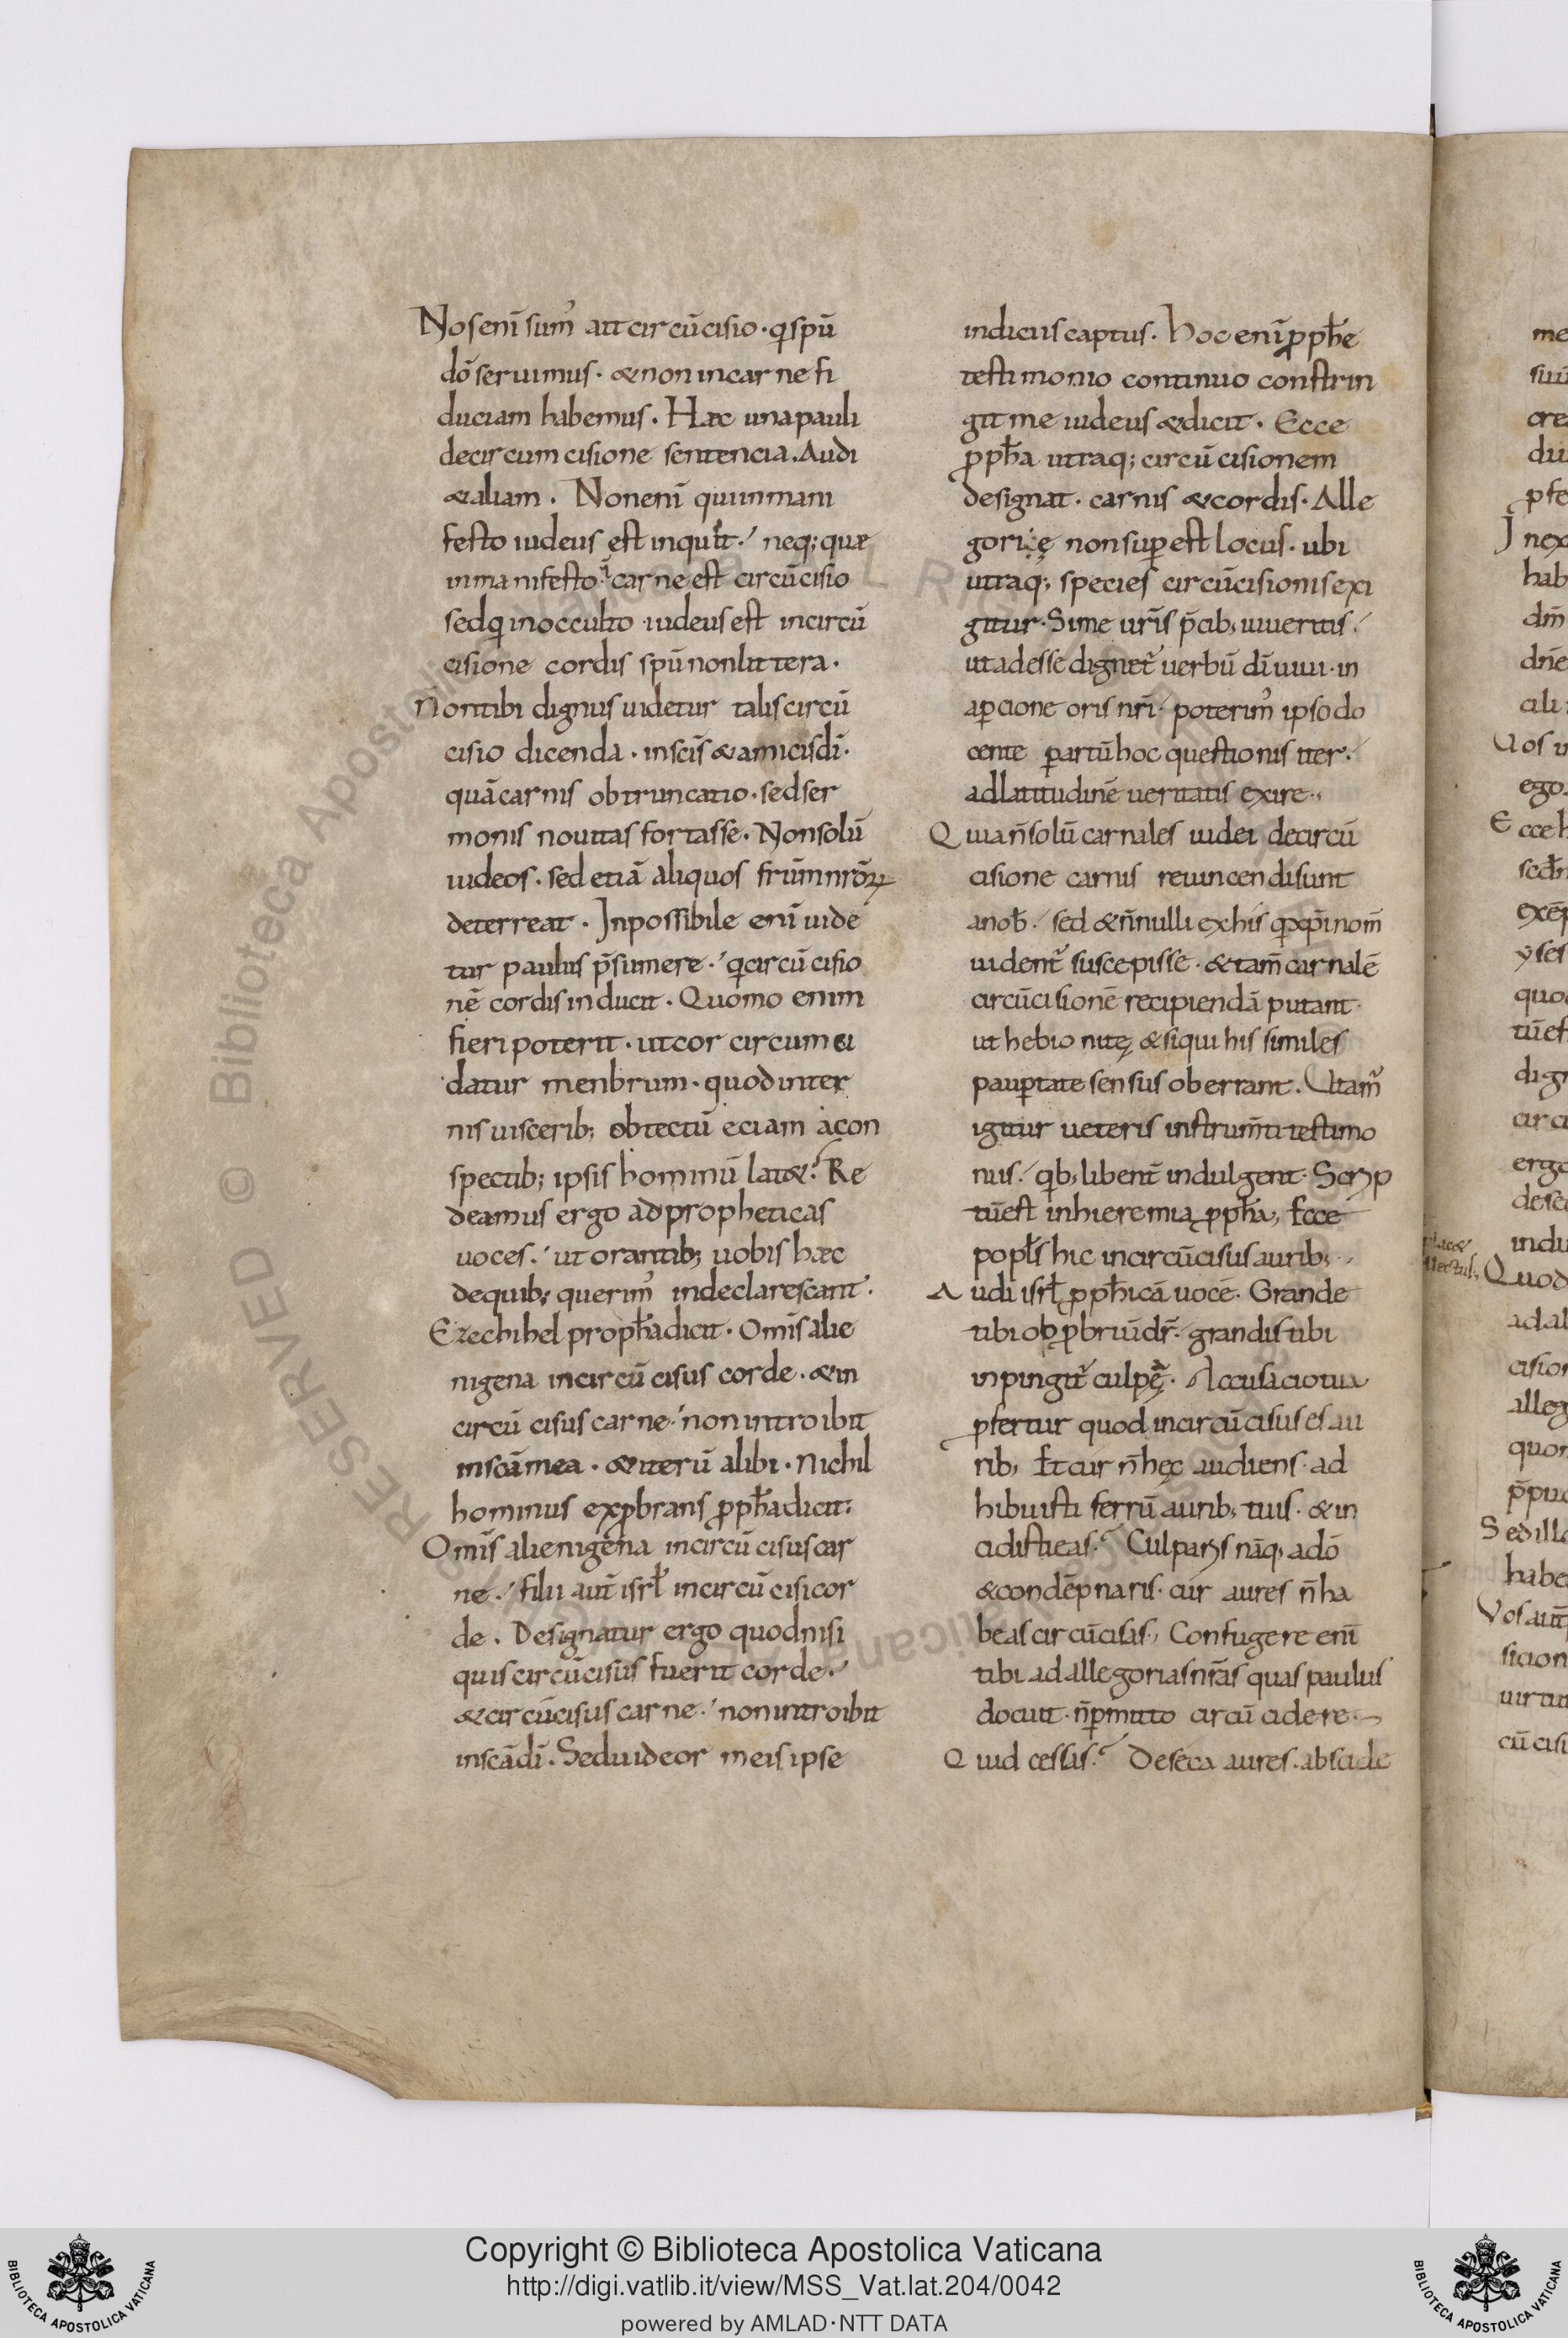 Nos enī sum᾽ ait circūcisio · q̄ spū
dō seruimus · & non in carne fi
duciam habemus . Hæc una pauli
de circumcisione sentencia . Audi
& aliam . Non enī qui in mani
festo iudeus est inquit · neq; quæ
in manifesto ī carne est circūcisio
sed q̄ in occulto iudeus est in circū
cisione cordis spū non littera ·
Non tibi dignus uidetur talis circū
cisio dicenda · in scīs & amicis dī ·
quā carnis obtruncatio · sed ser
monis nouitas fortasse . Non solū
iudeos · sed etiā aliquos frūm nrōꝝ
deterreat . Inpossibile enī uide
tur paulus p̄sumere · q̄ circūcisio
nē cordis inducit . Quomo enim
fieri poterit · ut cor circumci
datur menbrum · quod inter
nis uiscerib; obtectū eciam a con
spectib; ipsis hominū lat& ? Re
deamus ergo ad propheticas
uoces . ut orantib; uobis hæc
de quib; querim᾽ indeclarescant .
Ezechihel proph̄a dicit . Omīs alie
nigena incircūcisus corde . & in
circūcisus carne · non introibit
in scā mea . & iterū alibi . Nichil
hominus exꝓbrans ꝓph̄a dicit :
Omīs alienigena incircūcisus car
ne . filii aut̄ isrl̄ incircūcisi cor
de . Designatur ergo quod nisi
quis circūcisus fuerit corde .
& circūcisus carne · non introibit
in scā dī . Sed uideor meis ipse
indiciis captus . Hoc enī ꝓph̄e
testimonio continuo constrin
git me iudeus & dicit . Ecce
ꝓph̄a utraq; circūcisionem
designat . carnis & cordis . Alle
gorię non suꝑest locus . ubi
utraq; species circūcisionis exi
gitur . Si me ur̄is p̄cib; iuueritis
ut adesse dignet̄ uerbū dī uiui · in
aꝑcione oris nr̄i · poterim᾽ ipso do
cente ꝑ artū hoc questionis iter
ad latitudinē ueritatis exire .
Quia n̄ solū carnales iudei de circū
cisione carnis reuincendi sunt
a nob̄ . sed & n̄nulli ex his q̄ xp̄i nom̄
uident̄ suscepisse . & tam̄ carnalē
circūcisionē recipiendā putant
ut hebionitę & siqui his similes
pauꝑtate sensus oberrant . Utam᾽
igitur ueteris instrum̄ti testimo
niis · q̄b; libent̄ indulgent . Scrip
tū est in hieremia ꝓph̄a , Ecce
popl̄s hic incircūcisus aurib;
Audi isrl̄ ꝓph̄icā uocē . Grande
tibi obꝓbriū dr̄ . grandis tibi
inpingit̄ culpę . Accusacio tua
ꝓfertur quod incircūcisus es au
rib; Et cur n̄ hęc audiens · ad
hibuisti ferrū aurib; tuis . & in
cidisti eas ? Culparis nāq; a dō
& condēpnaris . cur aures n̄ ha
beas circūcisas , Confugere enī
tibi ad allegorias nr̄as quas paulus
docuit · n̄ ꝑmitto circūcidere
Quid cessas ? Deseca aures . abscide
Copyright © Biblioteca Apostolica Vaticana
http://digi.vatlib.it/view/MSS_Vat.lat.204/0042
powered by AMLAD·NTT DATA
BIBLIOTECA APOSTOLICA VATICANA
BIBLIOTECA APOSTOLICA VATICANA